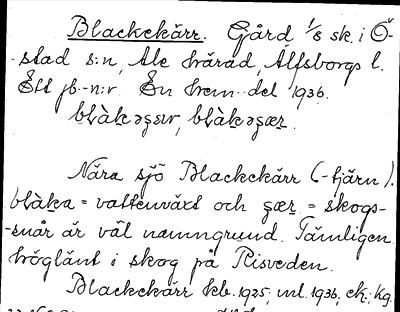 Blackekärr. Gård 1/8 sk. i Ö-
-stad s:n, Ale härad, Älfsborgs l.
Ett jb.-n:r. En hem.-del 1936.
Nära sjö Blackekärr (-tjärn).
blàka = vattenväxt och = skogs-
-snår är väl namngrund. Tämligen
höglänt i skog på Risveden.
Blackekärr hfb. 1925, ml. 1936, ek.; kg.